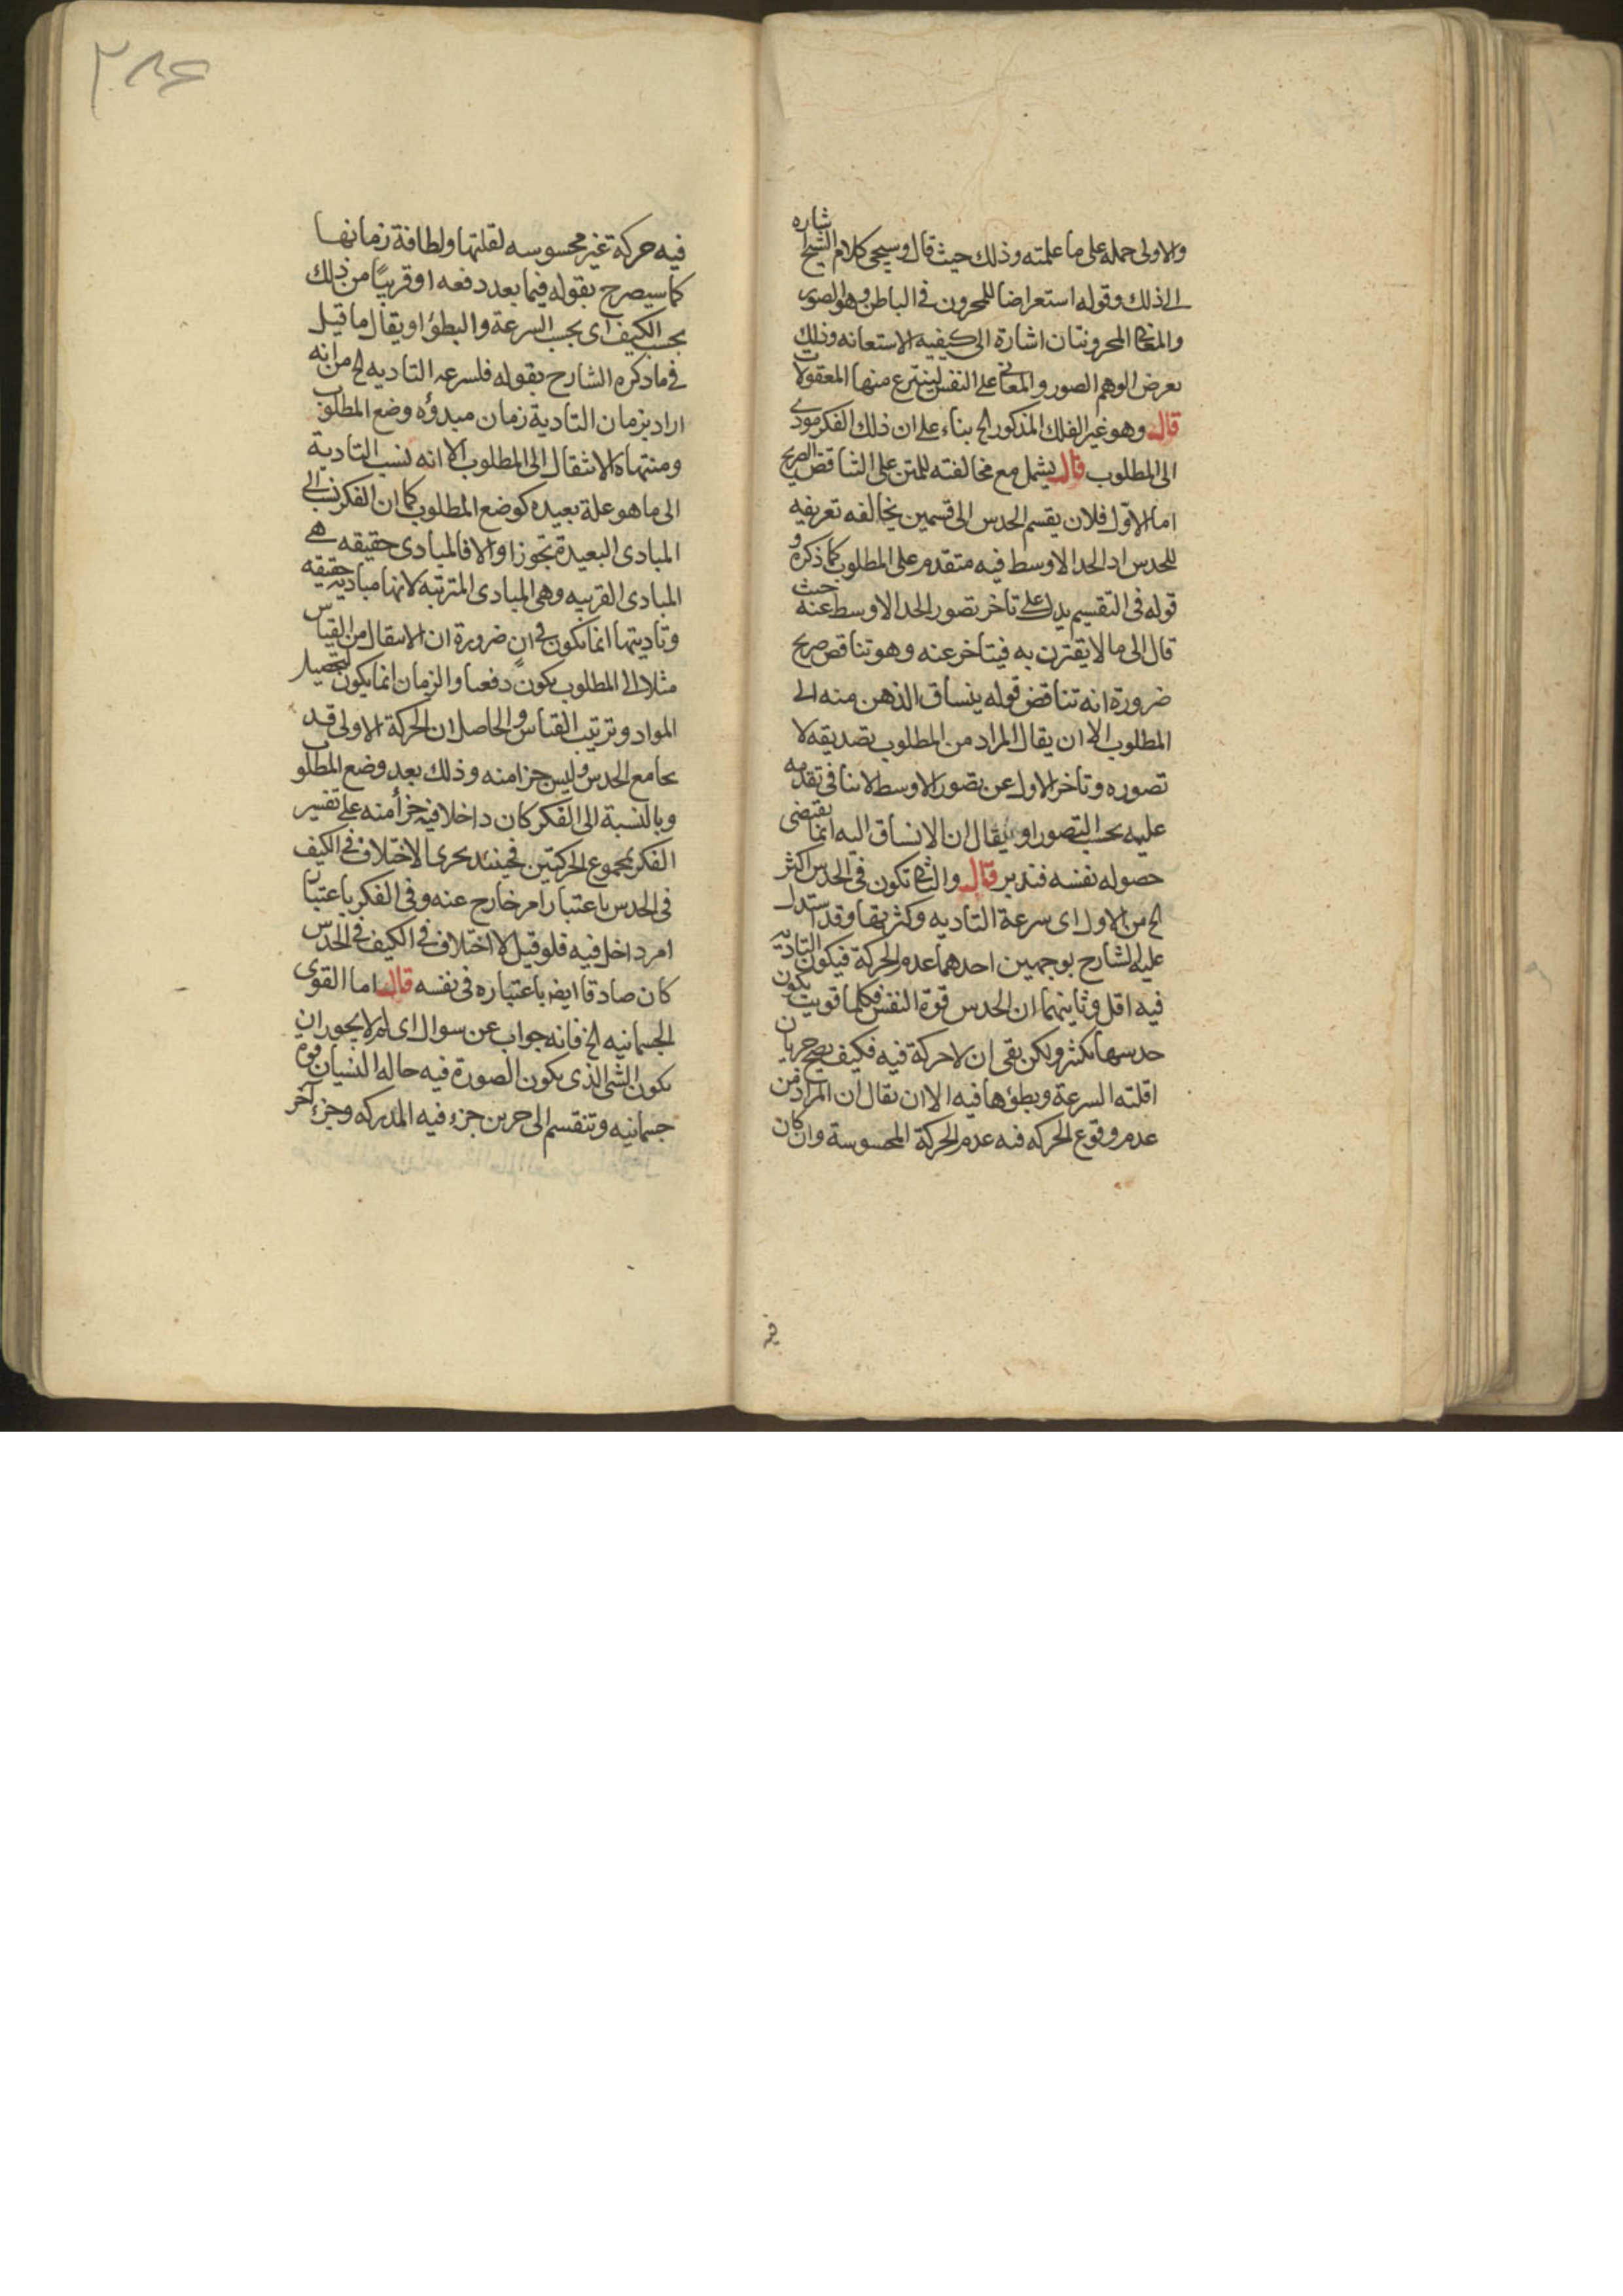 والاولى حمله على ما علمته وذلك حيث قال وسيجى كلام الشيخ شاره
الى ذلك وقوله استعراضا للمخزون فى الباطن وهو الصور
والمعانى المخزونتان اشارة الى كيفيه الاستعانه وذلك
بعرض الوهم الصور والمعانى على النفس لينتزع منها المعقولات
قال وهو غير الفلك المذكور الخ بناء على ان ذلك الفكر مودى
الى المطلوب قال يشمل مع مخالفته للمتن على التناقض الصريح
اما الاول فلان يقسم الحدس الى قسمين يخالفه تعريفه
للحدس اذ الحد الاوسط فيه متقدم على المطلوب كما ذكره و
قوله فى التقسيم يدل على تاخر تصور الحد الاوسط عنه حيث
قال الى ما لا يقترن به فيتاخر عنه وهو تناقض صريح
ضرورة انه تناقض قوله ينساق الذهن منه الى
المطلوب الا ان يقال المراد من المطلوب تصديقه لا
تصوره وتاخر الاول عن تصور الاوسط لا ينافى تقدمه
عليه بحسب التصور او يقال ان الانساق اليه انما يقتضى
حصوله نفسه فتدبر قال والثانى تكون فى الحدس اكثر
الخ من الاول اى سرعة التاديه وكثريتها وقد استدل
عليه الشارح بوجهين احدهما عدم الحركة فيكون التاديه
فيه اقل وثانيهما ان الحدس قوة النفس فكلما قويت يكون
حدسها اكثر ولكن بقى ان لا حركة فيه فكيف يصح جريان
اقلته السرعة وبطؤها فيه الا ان يقال ان المراد من
عدم وقوع الحركه فيه عدم الحركة المحسوسة وان كان
فيه
٢٨۶
فيه حركة غير محسوسه لقلتها ولطافة زمانها
كما سيصرح بقوله فيما بعد دفعه او قريبًا من ذلك
بحسب الكيف اى بحسب السرعة والبطؤ او يقال ما قيل
فى ما ذكره الشارح بقوله فلسرعه التاديه الخ من انه
اراد بزمان التادية زمان مبدؤه وضع المطلوب
ومنتهاه الانتقال الى المطلوب الا انه نسب التادية
الى ما هو علة بعيده كوضع المطلوب كما ان الفكر نسب الى
المبادى البعيدة تجوزا والا فالمبادى حقيقه هى
المبادى القريبه وهى المبادى المترتبه لانها مباديه حقيقه
وتاديتها انما تكون فى انٍ ضرورة ان الانتقال من القياس
مثلا الى المطلوب يكون دفعيا والزمان انما يكون لتحصيل
المواد وترتيب القياس والحاصل ان الحركة الاولى قد
يجامع الحدس وليس جزا منه وذلك بعد وضع المطلو
وبالنسبة الى الفكر كان داخلا فيه جزأ منه على تفسير
الفكر بمجموع الحركتين فحينئذ يجرى الاختلاف فى الكيف
فى الحدس باعتبار امر خارج عنه وفى الفكر باعتبار
امر داخل فيه فلو قيل لا اختلاف فى الكيف فى الحدس
كان صادقا ايضا باعتباره فى نفسه قال اما القوى
الجسمانيه الخ فانه جواب عن سوال اى لم لا يجوز ان
يكون الشى الذى يكون الصورة فيه حاله النسيان قوة
جسمانيه وتنقسم الى جزين جزء فيه المدركه وجزء آخر